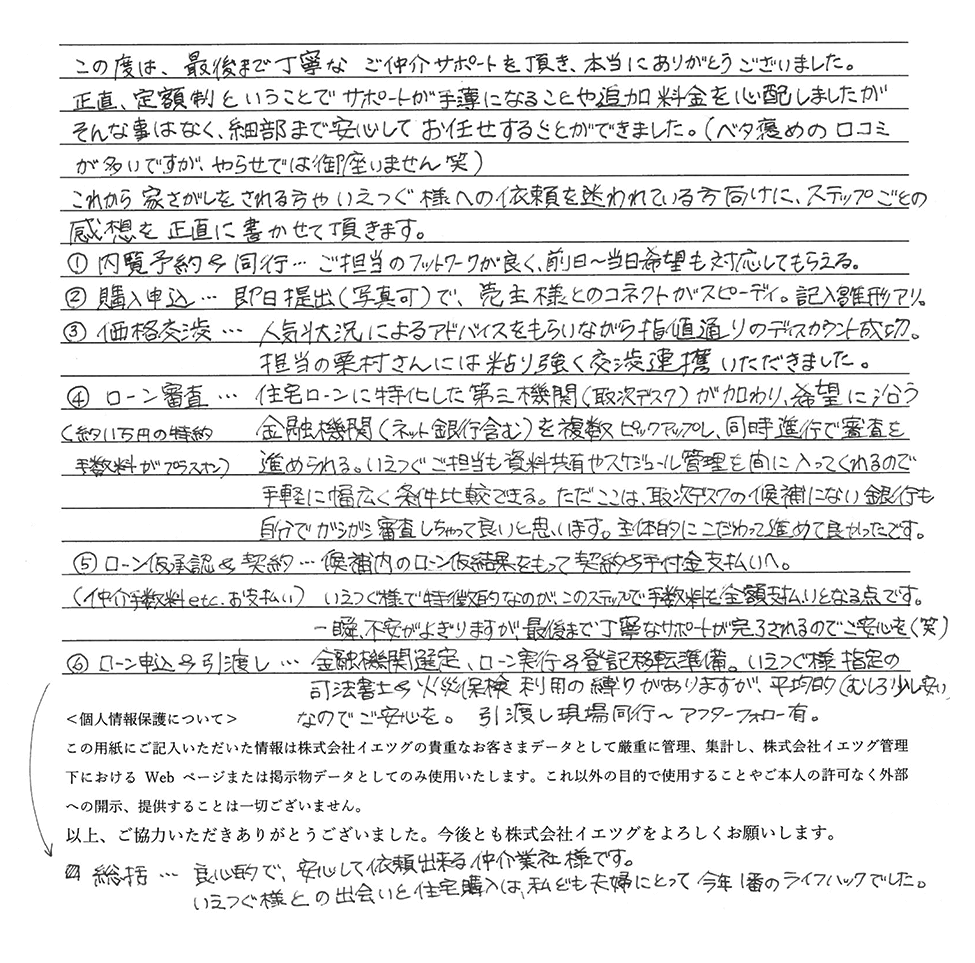 この度は、最後まで丁寧な ご仲介サポートを頂き、本当にありがとうございました。
正直、定額制ということでサポートが手薄になることや追加料金を心配しましたが
そんな事はなく、細部まで安心してお任せすることができました。（ベタ褒めの口コミ
が多いですが、やらせでは御座いません笑）
これから家さがしをされる方やいえつぐ様への依頼を迷われている方向けに、ステップごとの
感想を正直に書かせて頂きます。
① 内覧予約&同行… ご担当のフットワークが良く、前日〜当日希望も対応してもらえる。
② 購入申込… 即日提出（写真可）で、売主様とのコネクトがスピーディ。記入雛形アリ。
③ 価格交渉… 人気状況によるアドバイスをもらいながら指値通りのディスカウント成功。
担当の栗村さんには粘り強く交渉連携いただきました。
④ ローン審査… 住宅ローンに特化した第三機関（取次デスク）が加わり、希望に沿う
（約11万円の特約 金融機関（ネット銀行含む）を複数ピックアップし、同時進行で審査を
手数料がプラスオン） 進められる。いえつぐご担当も資料共有やスケジュール管理を間に入ってくれるので
手軽に幅広く条件比較できる。ただここは、取次デスクの候補にない銀行も
自分でガシガシ審査しちゃって良いと思います。主体的にこだわって進めて良かったです。
⑤ ローン仮承認&契約… 候補内のローン仮結果をもって契約&手付金支払いへ。
（仲介手数料etc.お支払い） いえつぐ様で特徴的なのが、このステップで手数料を全額支払いとなる点です。
一瞬、不安がよぎりますが、最後まで丁寧なサポートが完了されるのでご安心を（笑）
⑥ ローン申込&引渡し… 金融機関選定、ローン実行&登記移転準備。いえつぐ様指定の
司法書士&火災保検利用の縛りがありますが、平均的（むしろ少し安い）
なのでご安心を。 引渡し現場同行〜アフターフォロー有。
＜個人情報保護について＞
この用紙にご記入いただいた情報は株式会社イエツグの貴重なお客さまデータとして厳重に管理、集計し、株式会社イエツグ管理
下における Web ページまたは掲示物データとしてのみ使用いたします。これ以外の目的で使用することやご本人の許可なく外部
への開示、提供することは一切ございません。
以上、ご協力いただきありがとうございました。今後とも株式会社イエツグをよろしくお願いします。
総括… 良心的で、安心して依頼出来る仲介業社様です。
いえつぐ様との出会いと住宅購入は、私ども夫婦にとって今年1番のライフハックでした。